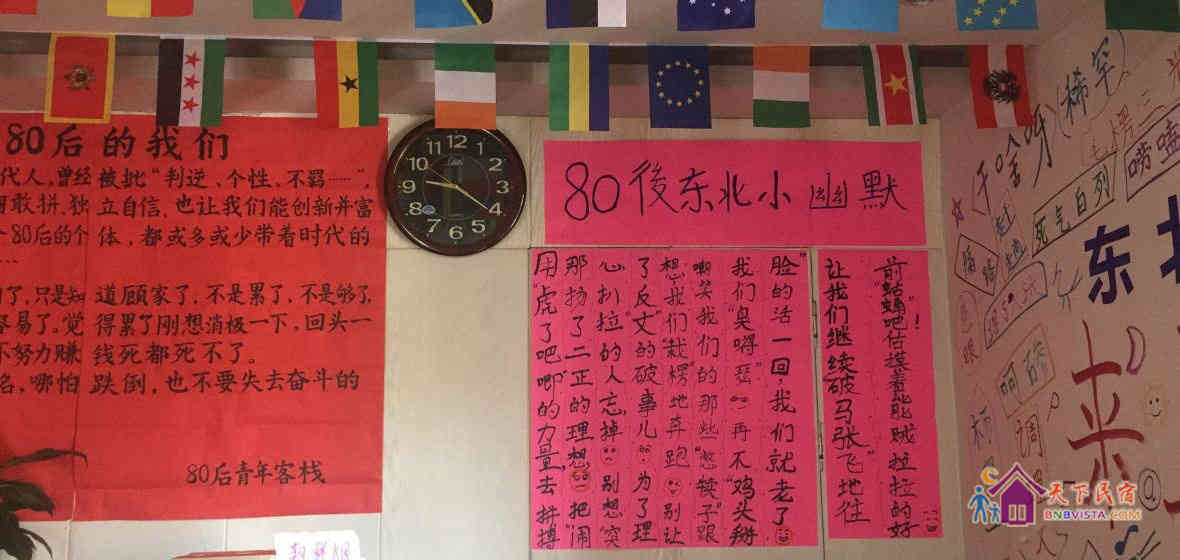 80后的我们
代人,曾经被批“判逆、个性、不羁……”,
敢拼、独立自信、也让我们能创新并富
个80后的个体,都或多或少带着时代的
了,只是知道顾家了,不是累了,不是够了,
容易了。觉得累了刚想消极一下,回头一
不努力赚钱死都死不了。
名,哪怕跌倒,也不要失去奋斗的
80后青年客栈
12
11
1
10
2
9
3
8
4
7
5
6
80後东北小幽默
脸”的活一回,我们就老了
我们“臭嘚瑟”再不“鸡头掰
嘲笑我们的那些“憋犊子”跟
想,我们“栽楞”地奔跑别让
了反丈”的破事儿为了理
心扒拉”的人忘掉别想“突
那扬了二正的理想,把“闹
用“虎了吧唧”的力量,去拼搏
前“蛄蛹”吧!估摸着能贼拉拉的好
让我们继续破马张飞”地往
干哈呀
(稀罕)
死气白列
唠嗑
东北
来
眼
调
@
天下民宿
BNBVISTA.COM